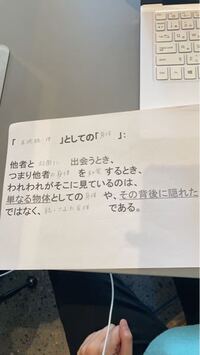 「 」としての「身体」：
他者と 出会うとき、
つまり他者の身体を知覚するとき、
われわれがそこに見ているのは、
単なる物体としての身体や、その背後に隠れた
ではなく、 である。